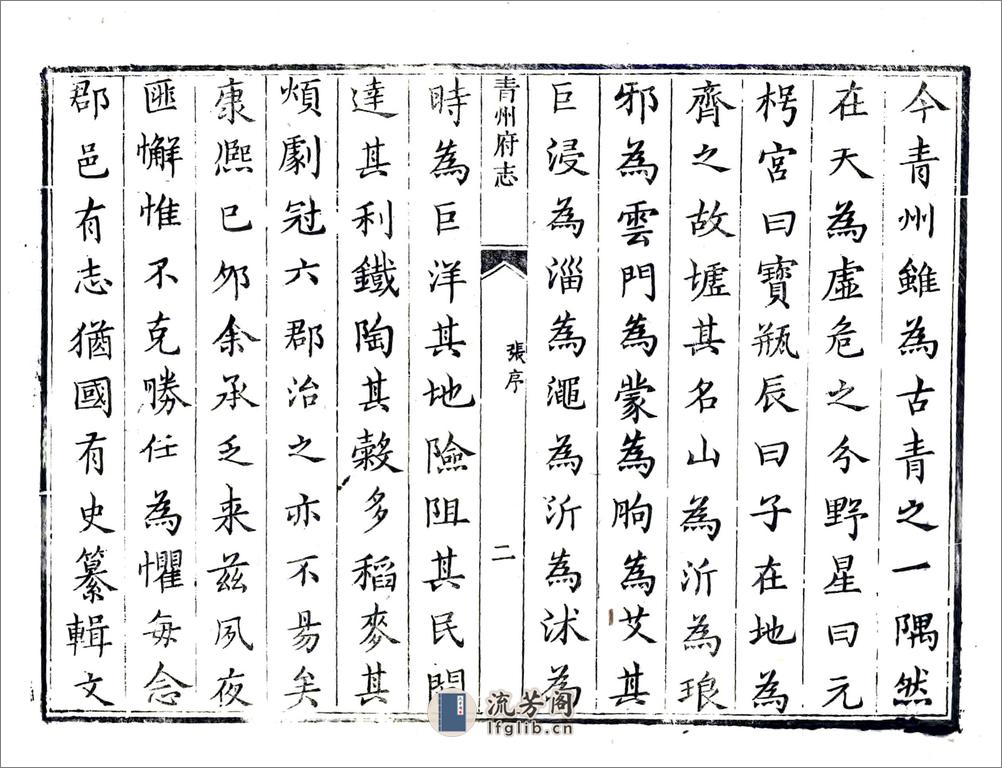 今青州雖為古青之一隅然
在天為虛危之分野星曰元
枵宮曰寶瓶辰曰子在地為
齊之故墟其名山為沂為琅
邪為雲門為蒙為朐為艾其
巨浸為淄為澠為沂為沭為
青州府志
張序
二
時為巨洋其地險阻其民闊
達其利鐵陶其穀多稻麥其
煩劇冠六郡治之亦不易矣
康熙已夘余承乏来茲夙夜
匪懈惟不克勝任為懼每念
郡邑有志猶國有史纂輯文
流芳阁
lfglib.cn